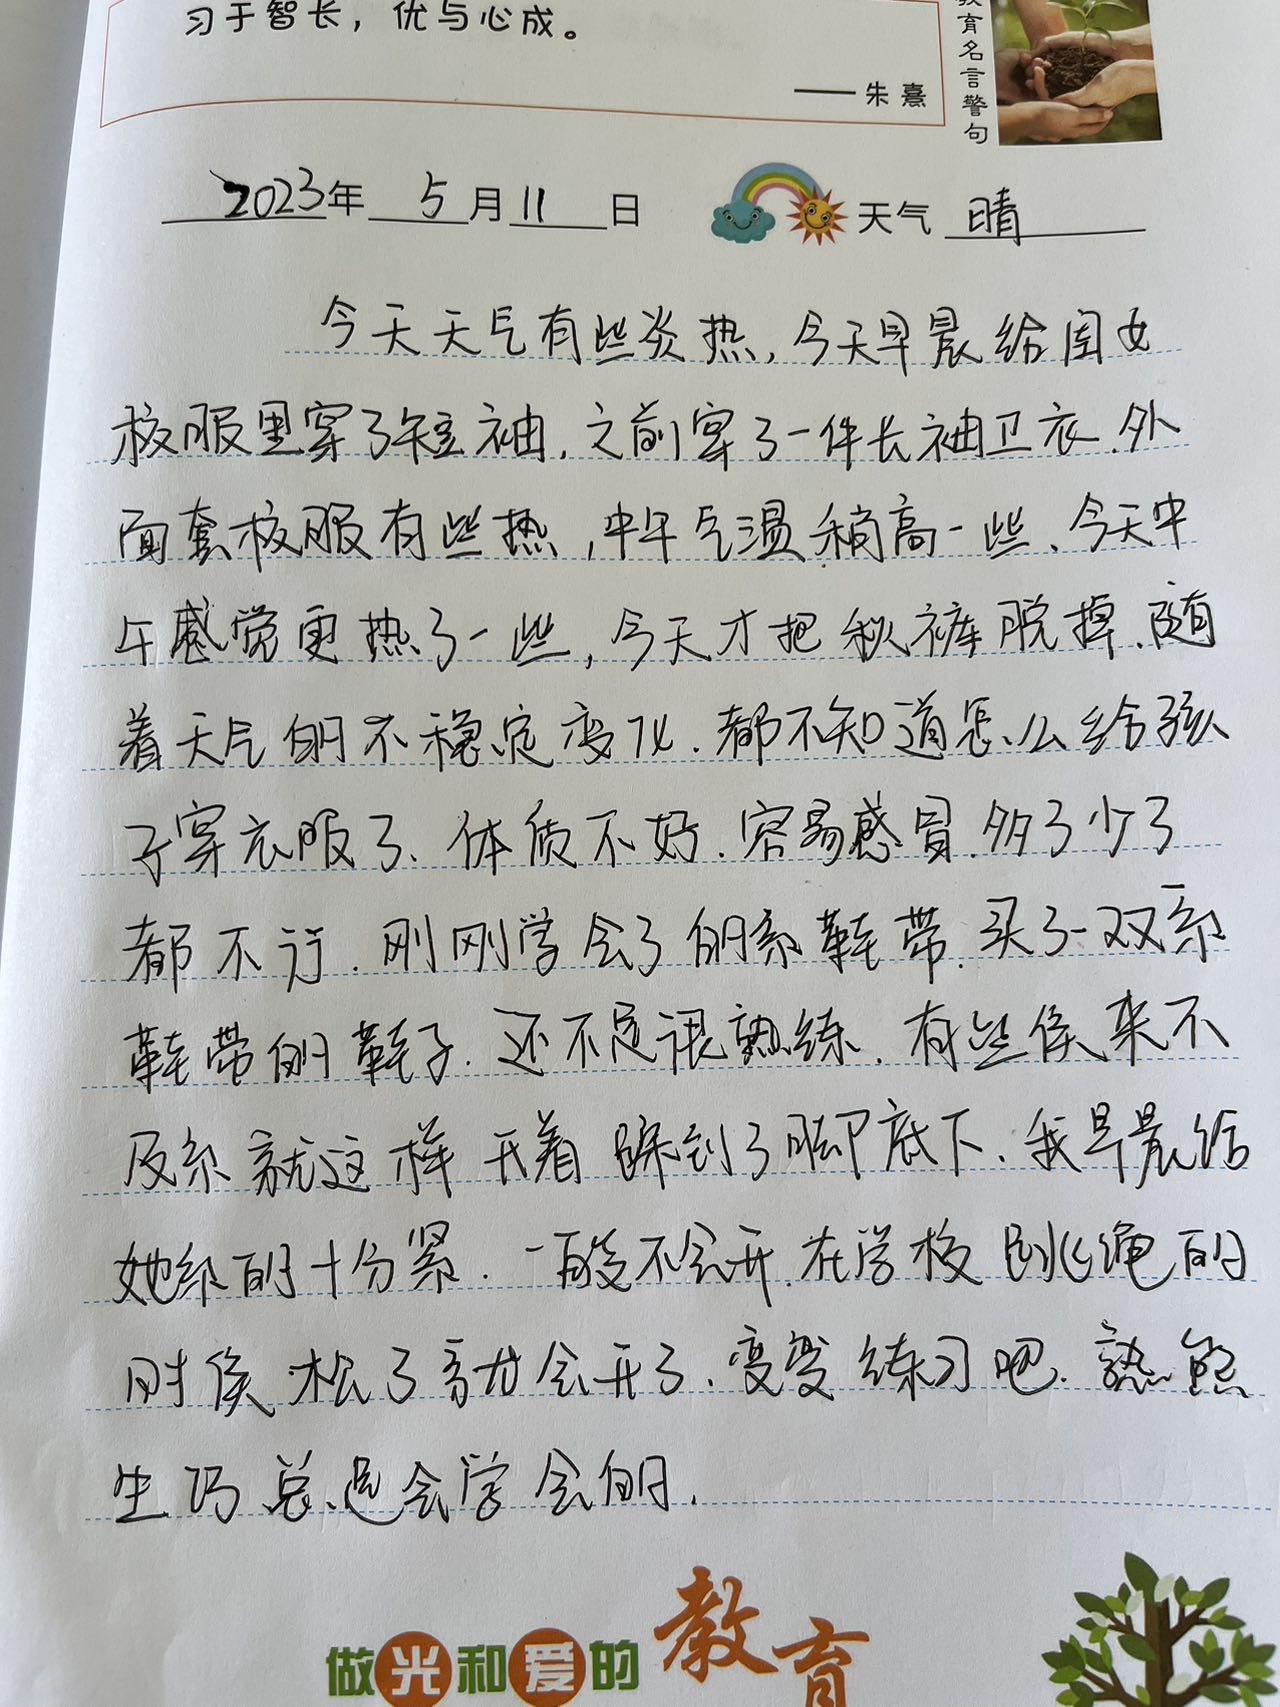 习于智长，优与心成。
——朱熹
教育名言警句
2023年 5月11日 天气 晴
今天天气有些炎热，今天早晨给闺女
校服里穿了短袖，之前穿了一件长袖卫衣，外
面套校服有些热，中午气温稍高一些、今天中
午感觉更热了一些，今天才把秋裤脱掉、随
着天气的不稳定变化，都不知道怎么给孩
子穿衣服了、体质不好，容易感冒，多了少了
都不行，刚刚学会了的系鞋带，买了一双系
鞋带的鞋子，还不是很熟练，有些侯来不
及系就这样开着踩到了脚底下、我早晨给
她系的十分紧，一般不会开，在学校跳绳的
时侯松了就会开了、变变练习吧，熟能
生巧总是会学会的，
做光和爱的教育